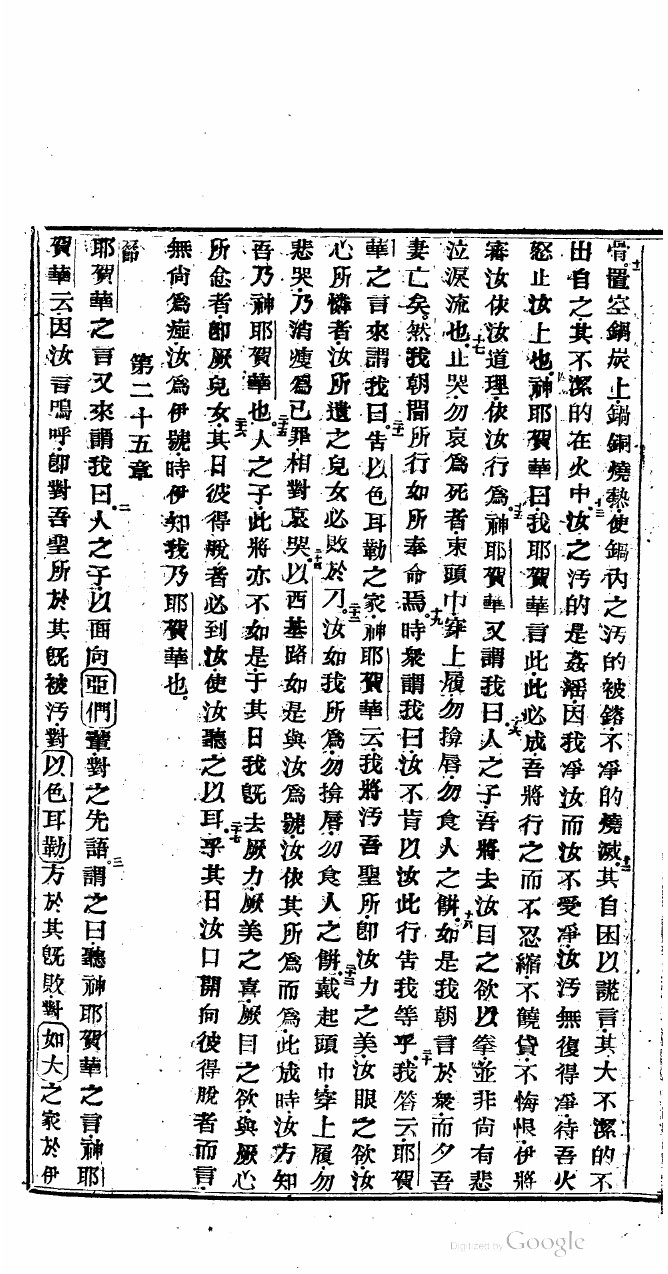 骨置空鍋炭上鍋銅燒熱使鍋內之汚的被鎔不凈的燒滅其自因以謊言其大不潔的不
出自之其不潔的在火中汝之汚的是姦滛因我凈汝而汝不愛凈汝汚無復得凈待吾火
怒止汝上也神耶賀華曰我耶賀華言此此必成吾將行之而不忍縮不饒貸不悔恨伊將
審汝依汝道理依汝行爲神耶賀華又謂我曰人之子吾將去汝目之欲以拳並非尙有悲
泣淚流也止哭勿哀爲死者束頭巾穿上履勿揜唇勿食人之餅如是我朝言於衆而夕吾
妻亡矣然我朝間所行如所奉命焉時衆謂我曰汝不肯以汝此行告我等乎我答云耶賀
華之言來謂我曰告以色耳勒之家神耶賀華云我將汚吾聖所卽汝力之美汝眼之欲汝
心所憐者汝所遺之兒女必敗於刀汝如我所爲勿揜唇勿食人之餅戴起頭巾穿上履勿
悲哭乃消瘦爲已罪相對哀哭以西基路如是與汝爲號汝依其所爲而爲此成時汝方知
吾乃神耶賀華也人之子此將亦不如是于其日我旣去厥力厥美之喜厥目之欲與厥心
所念者卽厥兒女其日彼得脫者必到汝使汝聽之以耳乎其日汝口開向彼得脫者而言
無尙爲瘂汝爲伊號時伊知我乃耶賀華也
第二十五章
耶賀華之言又來謂我曰人之子以面向亞們輩對之先語謂之曰聽神耶賀華之言神耶
賀華云因汝言嗚呼卽對吾聖所於其旣被汚對以色耳勒方於其旣敗對如大之家於伊
Digitized by Google